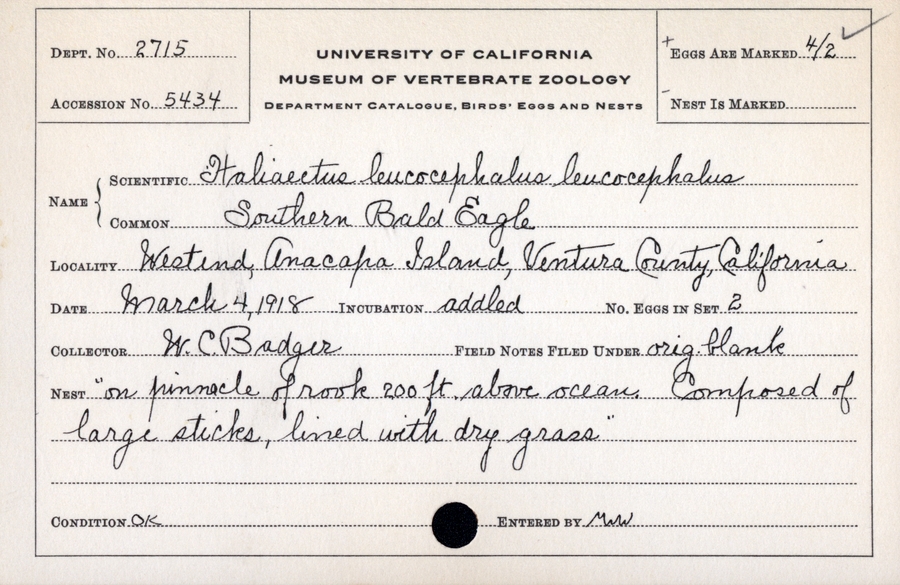 DEPT. No. 2715
ACCESSION No. 5434
UNIVERSITY OF CALIFORNIA
MUSEUM OF VERTEBRATE ZOOLOGY
DEPARTMENT CATALOGUE, BIRDS' EGGS AND NESTS
+ EGGS ARE MARKED 4/2 ✓
- NEST IS MARKED
NAME { SCIENTIFIC Haliaectus leucocephalus leucocephalus
COMMON Southern Bald Eagle
LOCALITY Westend, Anacapa Island, Ventura County, California
DATE March 4, 1918 INCUBATION addled No. EGGS IN SET 2
COLLECTOR W. C. Badger FIELD NOTES FILED UNDER orig. blank
NEST "on pinnacle of rook 200 ft. above ocean. Composed of
large sticks, lined with dry grass"
CONDITION OK ENTERED BY